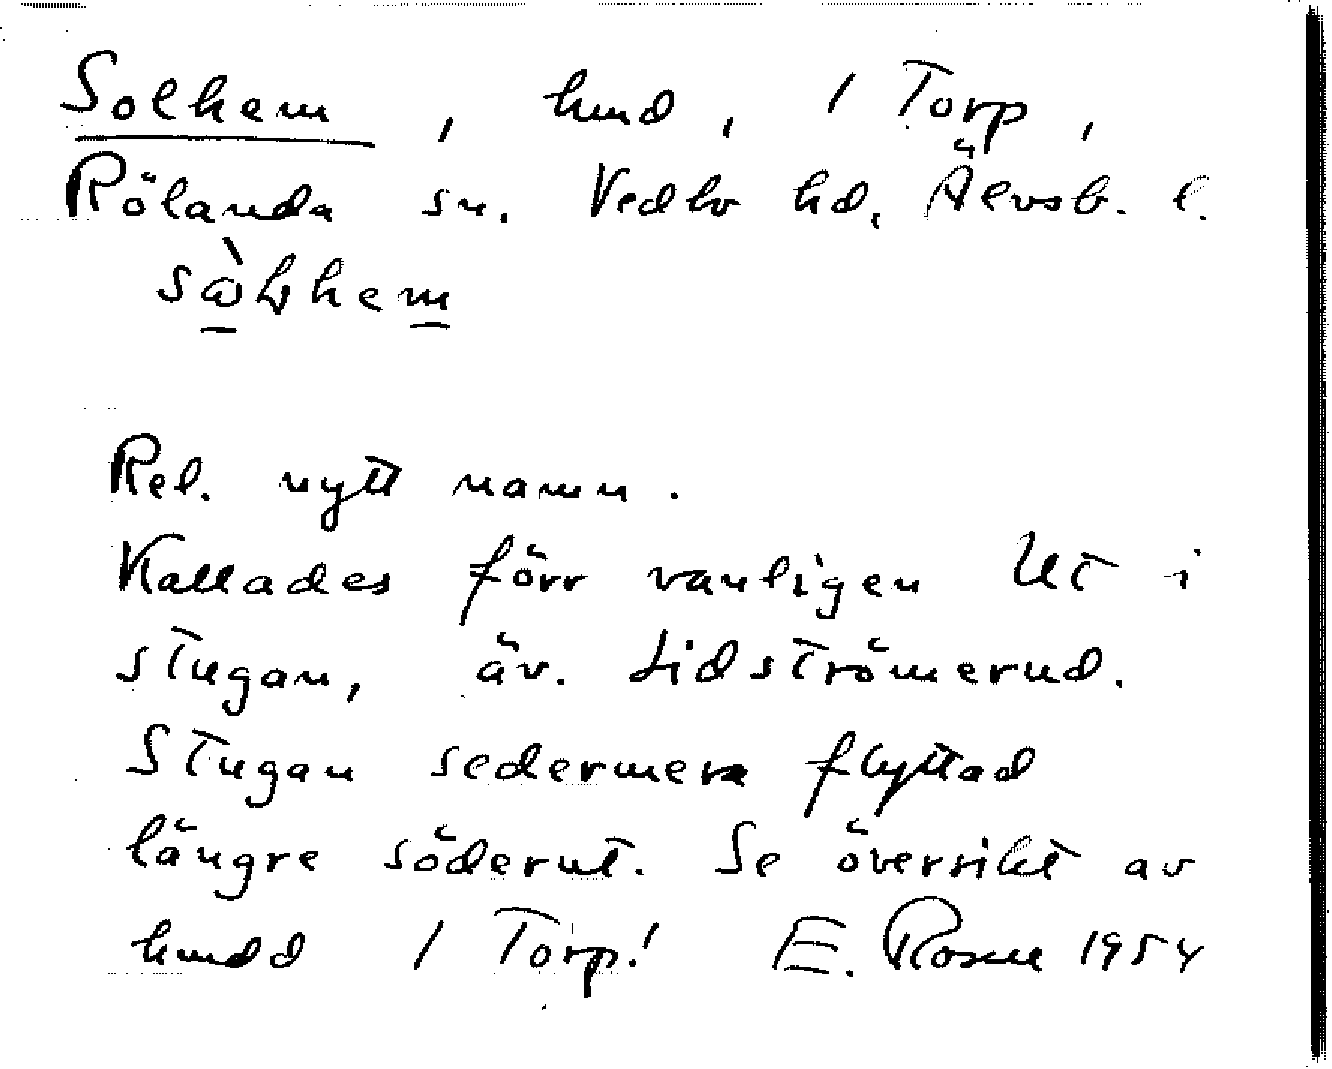 Solhem, hmd, 1 Torp,
Rölanda sn. Vedbo hd. Älvsb. l.
Rel. nytt namn.
Kallades förr vanligen Ut i
stugan, äv. Lidströmerud.
Stugan sedermera flyttad
längre söderut. Se översikt av
hmdd 1 Torp! E. Rosell 1954